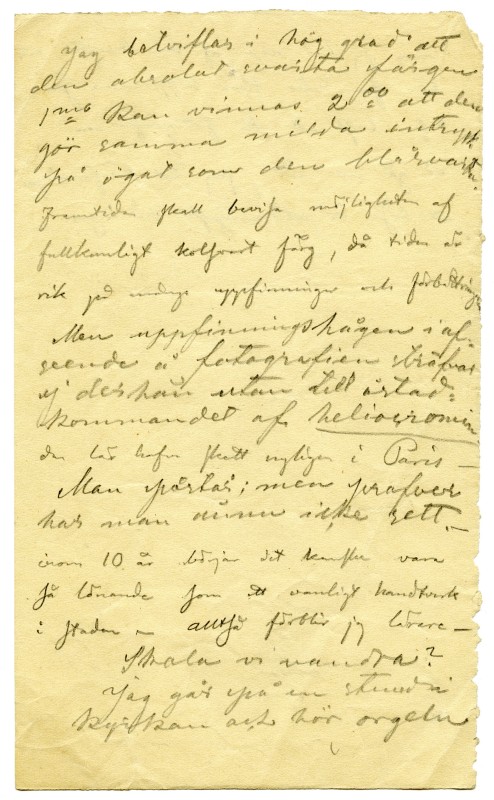 Jag betviflar i hög grad att
den absolut svarta färgen
1mo kan vinnas 2do att den
gör samma milda intryck
på ögat som den blåsvarta.
Framtiden skall bevisa möjligheten af
fullkomligt kolsvart färg, då tiden är
rik på många uppfinningar och förbättringar
Men uppfinningshågen i af-
seende å fotografien sträfvar
ej deshän utan till åstad-
kommandet af heliocromin
den lär hafva skett nyligen i Paris –
Man påstår; men profver
har man ännu icke sett –
inom 10 år börjar det kanske vara
så lönande som ett vanligt handtverk
i staden – alltså förblir jag lärare –
Skola vi vandra?
Jag går på en stund i
kyrkan och hör orgeln